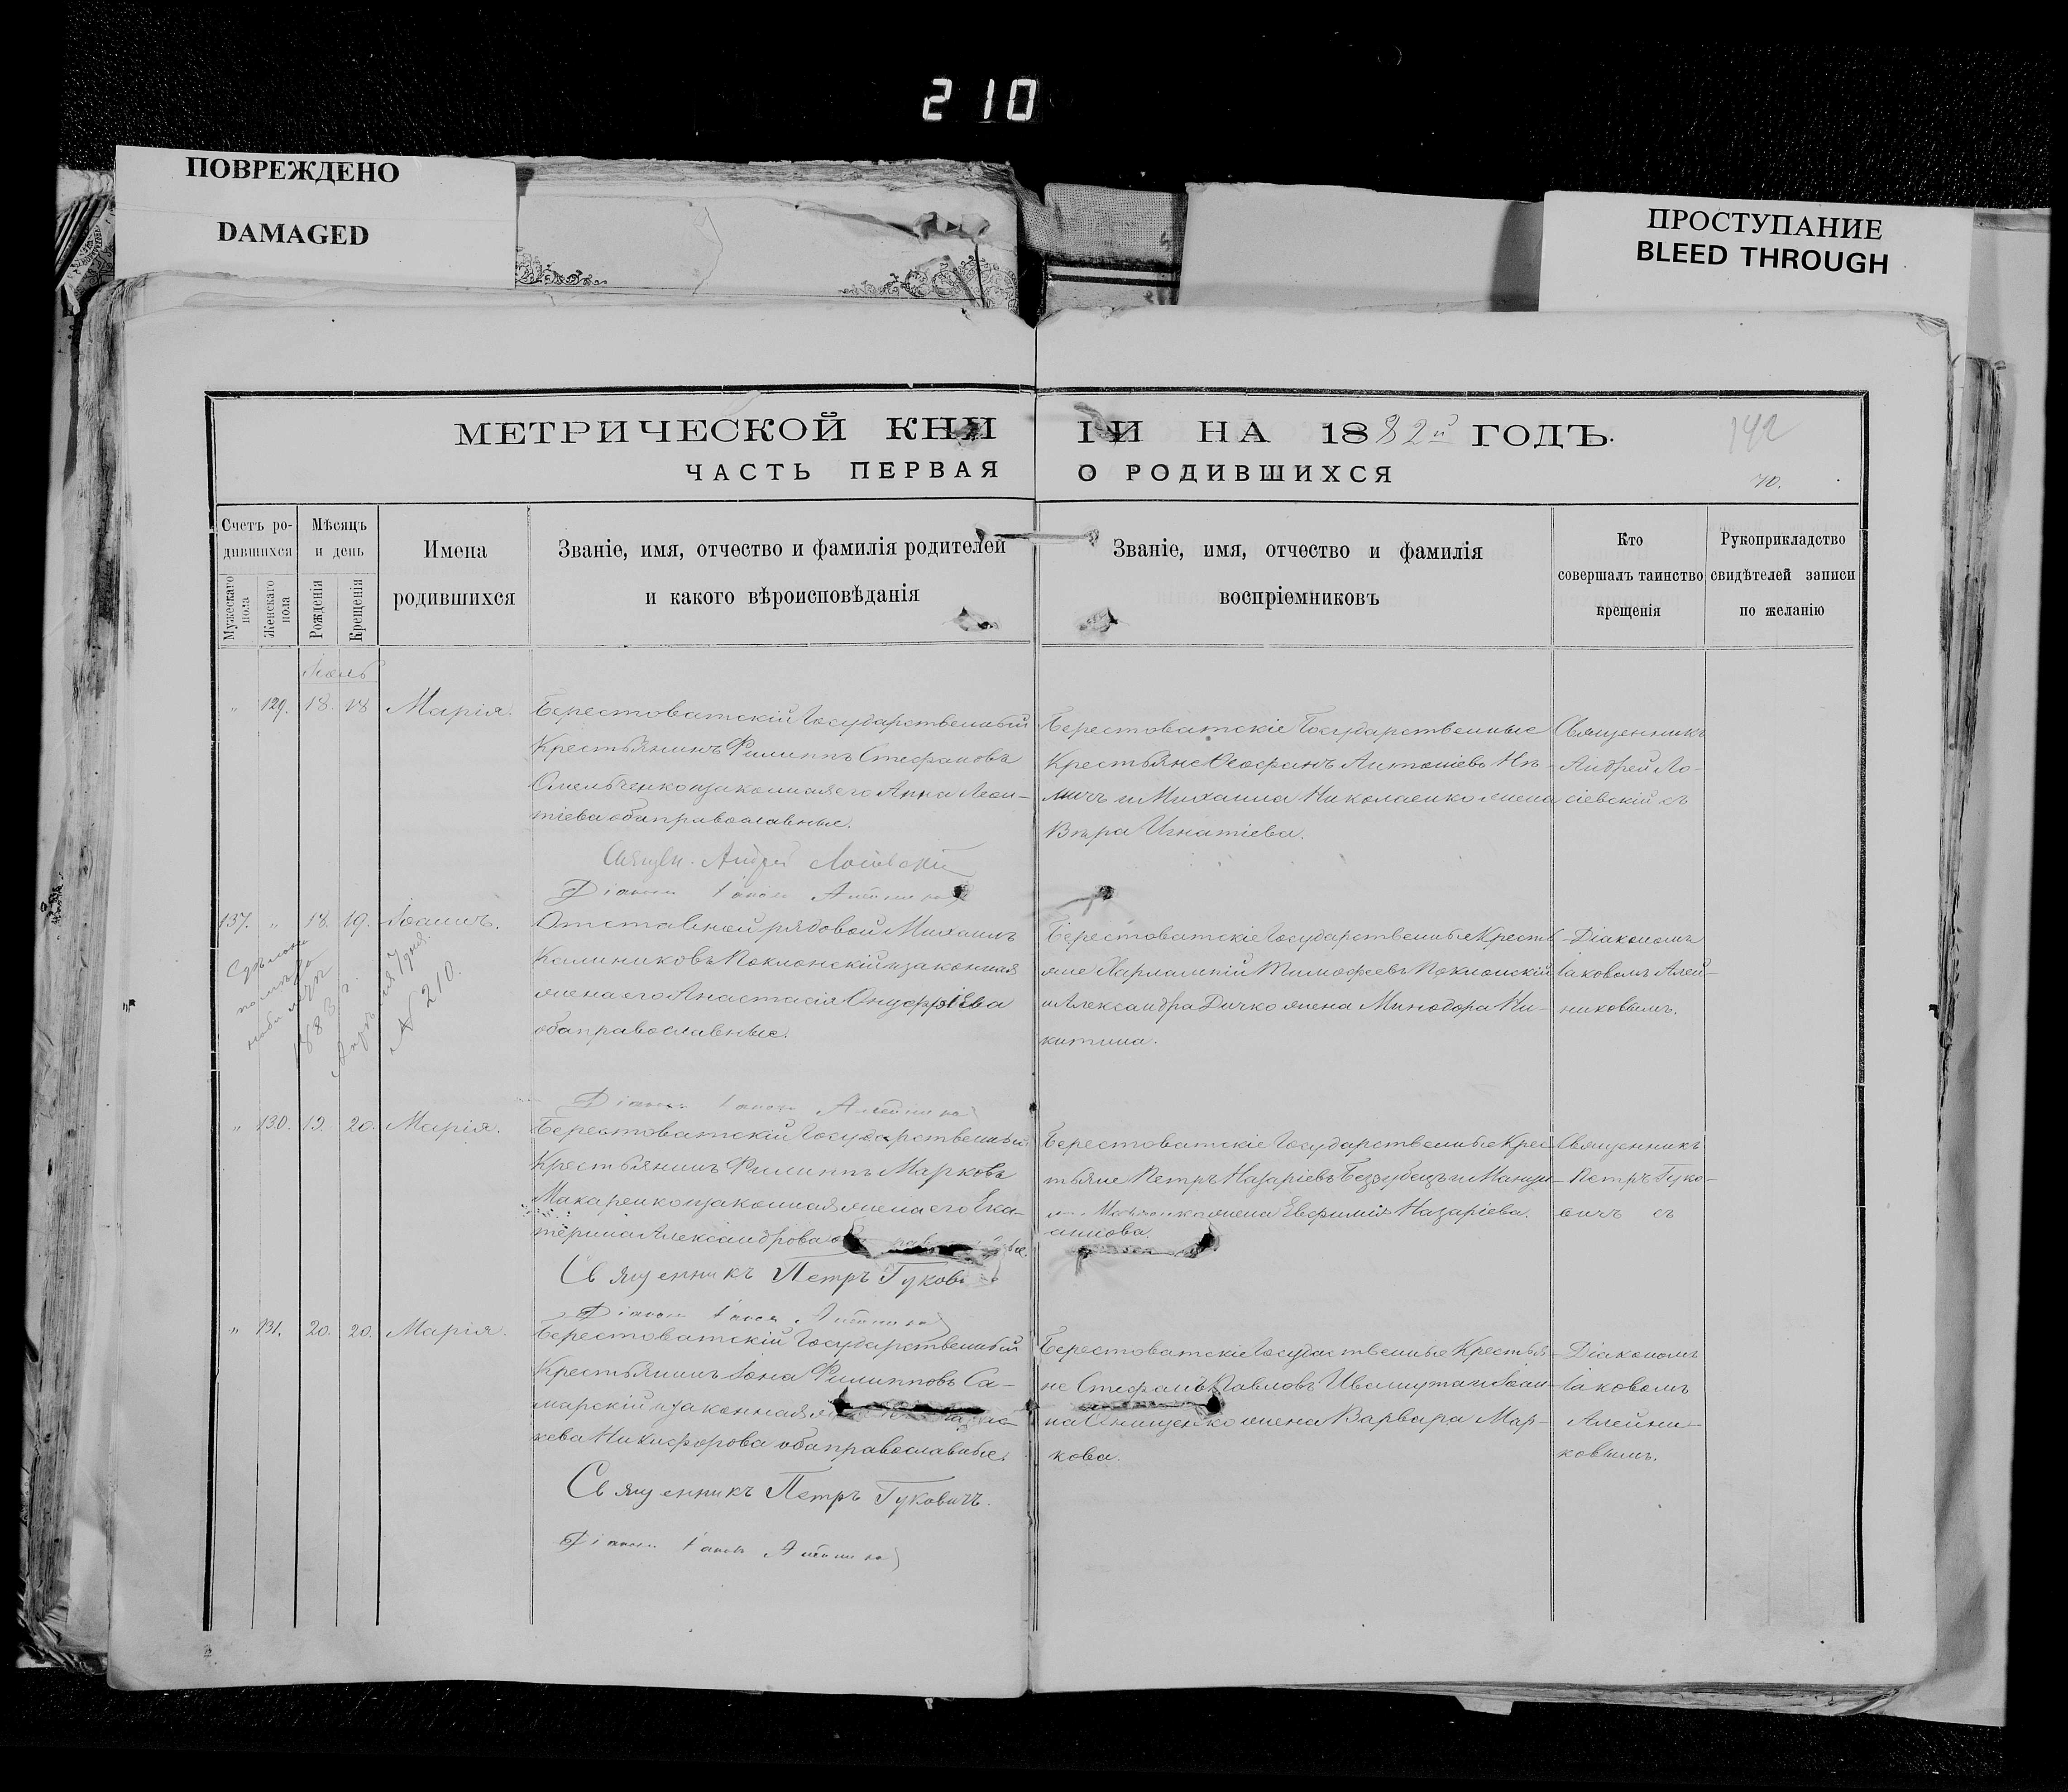 210
ПОВРЕЖДЕНО
DAMAGED
ПРОСТУПАНИЕ
BLEED THROUGH
МЕТРИЧЕСКОЙ КНИ ГИ НА 1882й ГОДЪ.
142
ЧАСТЬ ПЕРВАЯ О РОДИВШИХСЯ
70.
Счетъ родившихся
Мужескаго пола
Женскаго пола
Мѣсяцъ и день
Рожденія
Крещенія
Имена родившихся
Званіе, имя, отчество и фамилія родителей
и какого вѣроисповѣданія
Званіе, имя, отчество и фамилія
воспріемниковъ
Кто
совершалъ таинство
крещенія
Рукоприкладство
свидѣтелей записи
по желанію
" 129. 18. 18 Марія.
Берестоватскій Государственный
Крестьянинъ Филиппъ Стефановъ
Омельченко и законная его Анна Леон-
тіева оба православные.
Священ. Андрей Лосіевскій
Берестоватскіе Государственные
Крестьяне Ѳеофанъ Антоніевъ
и Михаила Николаенко жена
Вѣра Игнатіева.
Священникъ
Андрей Ло-
сіевскій съ
137. " 18. 19. Іоаннъ.
1883 г.
№ 210.
Отставной рядовой Михаилъ
Калиниковъ Поклонскій и законная
жена его Анастасія Онуфріева
оба православные.
Берестоватскіе Государственные Кресть-
яне Харлампій Тимофеевъ Поклонскій
и Александра Дичко жена Минодора Ни-
китина.
Діакономъ
Іаковомъ Алей-
никовымъ.
" 130. 19. 20. Марія.
Берестоватскій Государственный
Крестьянинъ Филиппъ Марковъ
Макаренко и законная жена его Ека-
терина Александрова
Священникъ Петръ Гукови
Берестоватскіе Государственные Крес-
тьяне Петръ Назаріевъ Беззубецъ и
жена Евфимія Назаріева.
Священникъ
Петръ Гуко-
вичъ съ
" 131. 20. 20. Марія.
Берестоватскій Государственный
Крестьянинъ Іона Филипповъ Са-
марскій и законная
Никифорова оба православные.
Священникъ Петръ Гуковичъ.
Берестоватскіе Государственные Крестья-
не Стефанъ Павловъ Ивашута и Іоан-
на Онищенко жена Варвара Мар-
кова.
Діакономъ
Іаковомъ
Алейни-
ковымъ.